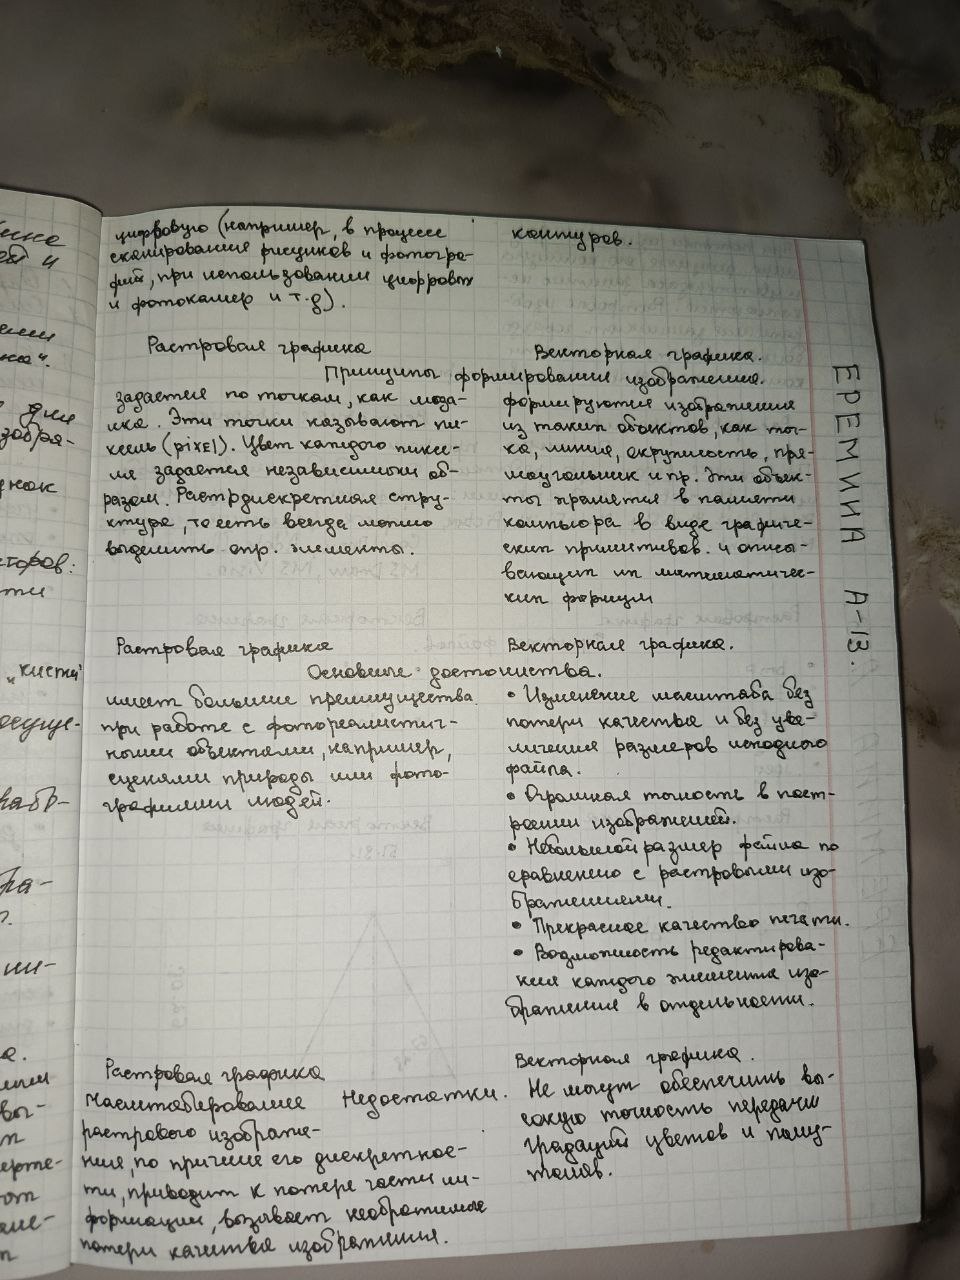 цифровую (например, в процессе
сканирования рисунков и фотогра-
фий, при использовании цифровых
и фотокамер и т.д).
контуров.
Растровая графика
Векторная графика.
Принципы формирования изображения.
задается по точкам, как моза-
ика. Эти точки называют пи-
ксель (pixel). Цвет каждого пиксе-
ля задается независимым об-
разом. Растрдискретная стру-
ктура, то есть всегда можно
выделить отр. элементы.
формируются изображения
из таких объектов, как точ-
ка, линия, окружность, пря-
моугольник и пр. Эти объек-
ты хранятся в памяти
компьюора в виде графиче-
ских примитивов. и описы-
вающих их математичес-
ких формул
Растровая графика
Векторная графика.
Основные достоинства.
имеет большие преимущества
при работе с фотореалистич-
ными объектами, например,
сценами природы или фото-
графиями людей.
• Изменение масштаба без
потери качества и без уве-
личения размеров исходного
файла.
• Огромная точность в пост-
роении изображений.
• Небольшой размер файла по
сравнению с растровыми изо-
бражениями.
• Прекрасное качество печати.
• Возможность редактирова-
ния каждого элемента изо-
бражения в отдельности.
Растровая графика
Векторная графика.
Недостатки.
Масштабирование
растрового изображе-
ния, по причине его дискретнос-
ти, приводит к потере части ин-
формации, вызывает необратимые
потери качества изображения.
Не могут обеспечить вы-
сокую точность передачи
градаций цветов и полу-
тонов.
ЕРЕМИНА А-13.
"кисти"